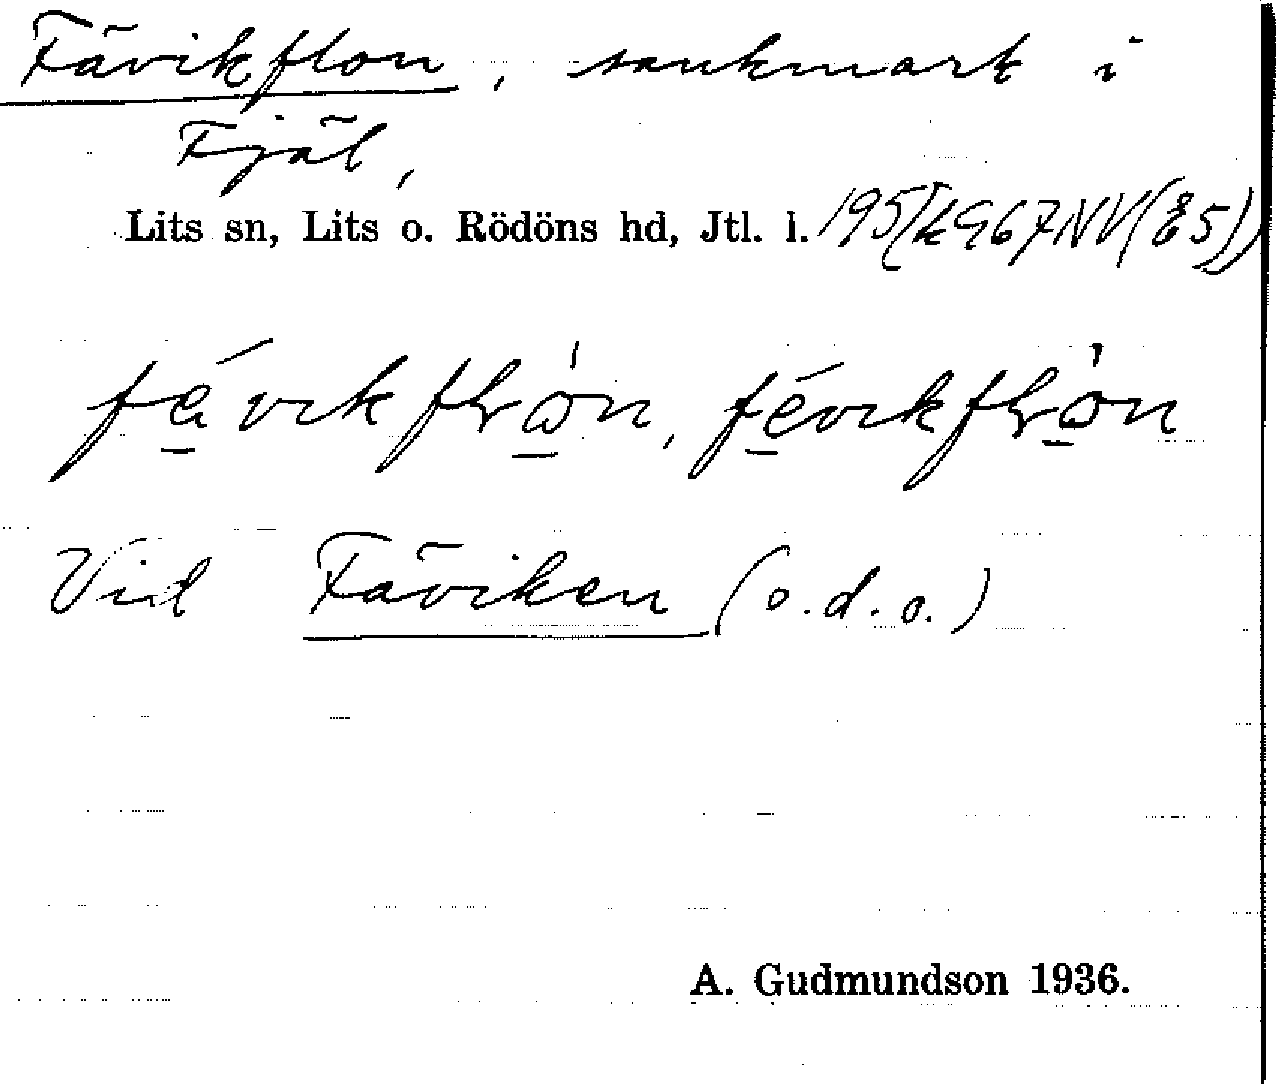 Fävikflon, sankmark i
Fjäl,
Lits sn, Lits o. Rödöns hd, Jtl. l. 195(k967NV(Ö5))
Vid Fäviken (o.d.o.)
A. Gudmundson 1936.